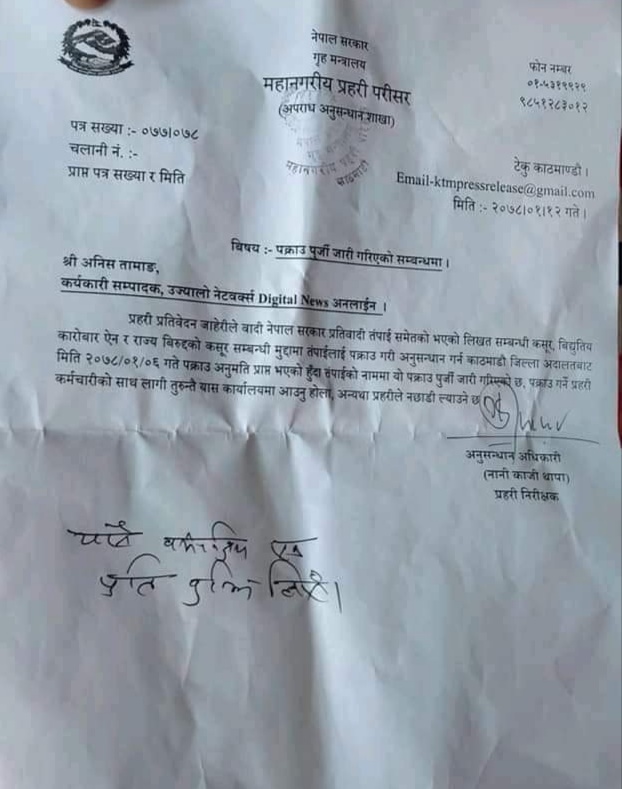 नेपाल सरकार
गृह मन्त्रालय
महानगरीय प्रहरी परीसर
(अपराध अनुसन्धान शाखा)
फोन नम्बर
०१-५३१९९२९
९८५१२८३०१२
पत्र सख्या :- ०७७।०७८
चलानी नं. :-
प्राप्त पत्र सख्या र मिति
टेकु काठमाण्डौ ।
Email-ktmpressrelease@gmail.com
मिति :- २०७८।०१।१२ गते ।
विषय :- पक्राउ पुर्जी जारी गरिएको सम्बन्धमा ।
श्री अनिस तामाङ,
कर्यकारी सम्पादक, उज्यालो नेटवर्क्स Digital News अनलाईन ।
प्रहरी प्रतिवेदन जाहेरीले वादी नेपाल सरकार प्रतिवादी तंपाई समेतको भएको लिखत सम्बन्धी कसूर, बिद्युतिय
कारोबार ऐन र राज्य बिरुद्दको कसूर सम्बन्धी मुद्दामा तंपाईलाई पक्राउ गरी अनुसन्धान गर्न काठमाडौ जिल्ला अदालतबाट
मिति २०७८/०१/०६ गते पक्राउ अनुमति प्राप्त भएको हुँदा तंपाईको नाममा यो पक्राउ पुर्जी जारी गरिएको छ, पक्राउ गर्ने प्रहरी
कर्मचारीको साथ लागी तुरुन्तै यास कार्यालयमा आउनु होला, अन्यथा प्रहरीले नछाडी ल्याउने छ
अनुसन्धान अधिकारी
(नानी काजी थापा)
प्रहरी निरीक्षक